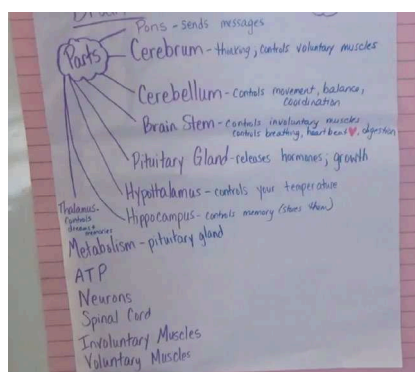 Pons - sends messages
Parts
Cerebrum - thinking, controls voluntary muscles
Cerebellum - controls movement, balance,
coordination
Brain Stem - controls involuntary muscles
controls breathing, heart beat ♥, digestion
Pituitary Gland - releases hormones, growth
Hypothalamus - controls your temperature
Hippocampus - controls memory (stores them)
Thalamus -
controls
dreams +
memories
Metabolism - pituitary gland
ATP
Neurons
Spinal Cord
Involuntary Muscles
Voluntary Muscles